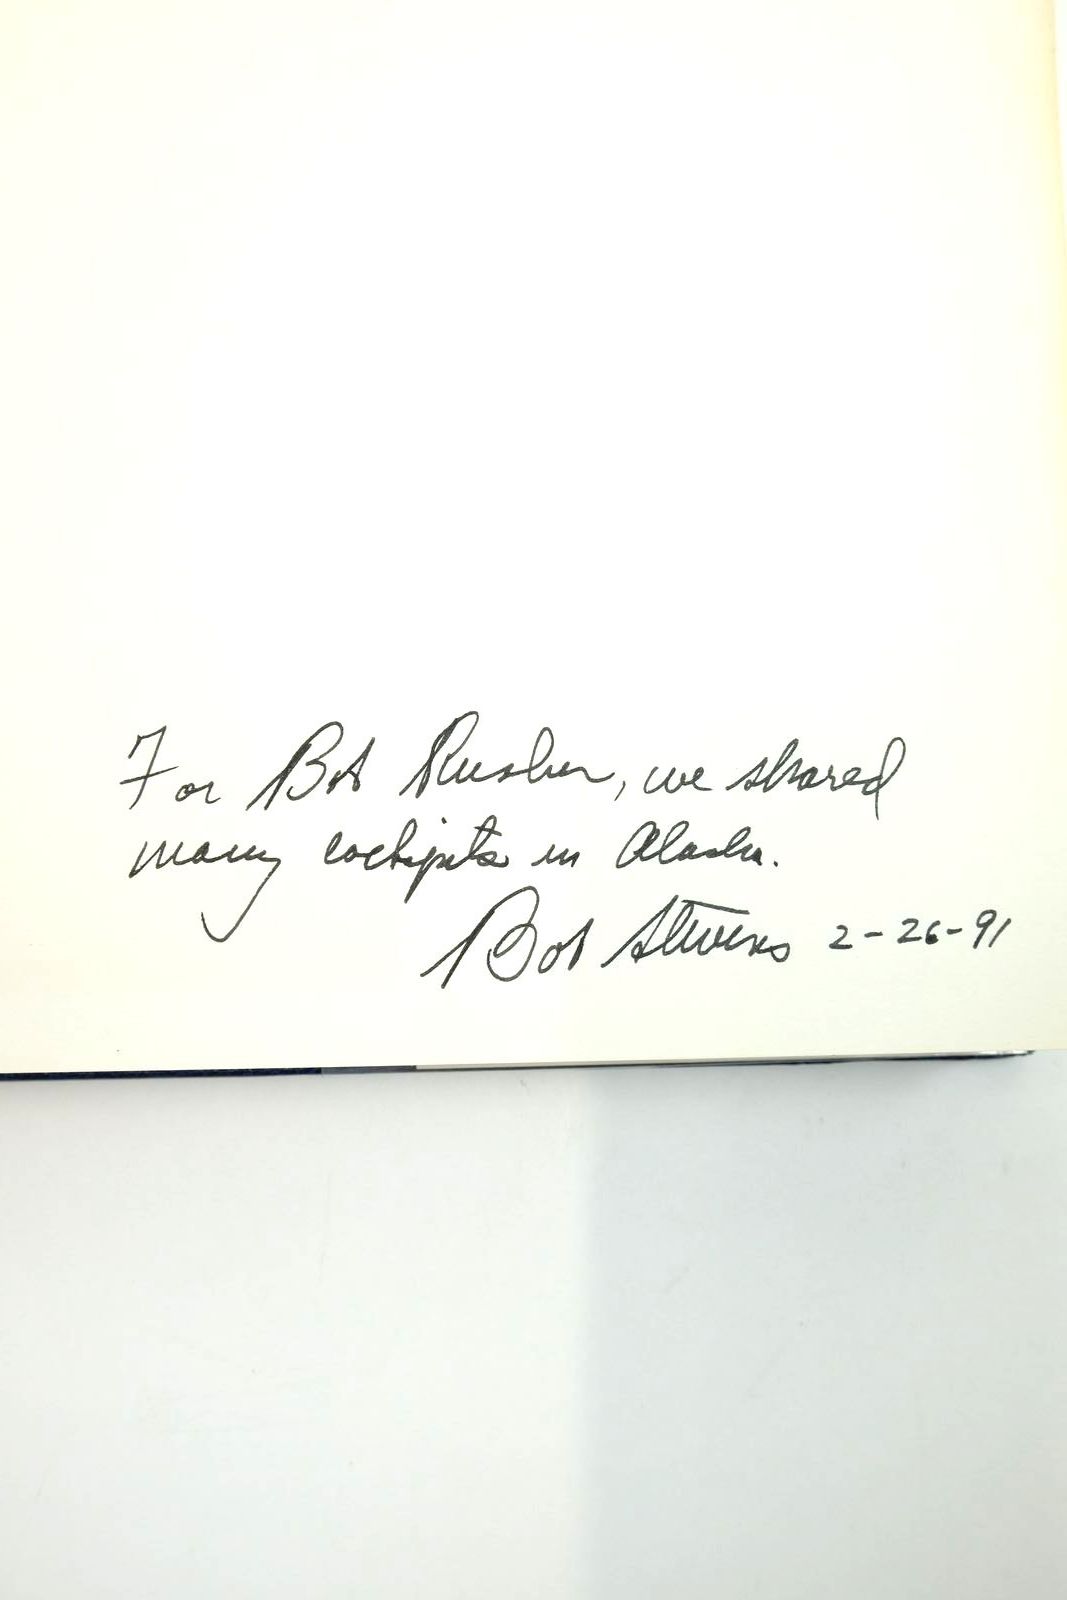 For Bob Rusher, we shared
many cockpits in Alaska.
Bob Stevens 2-26-91